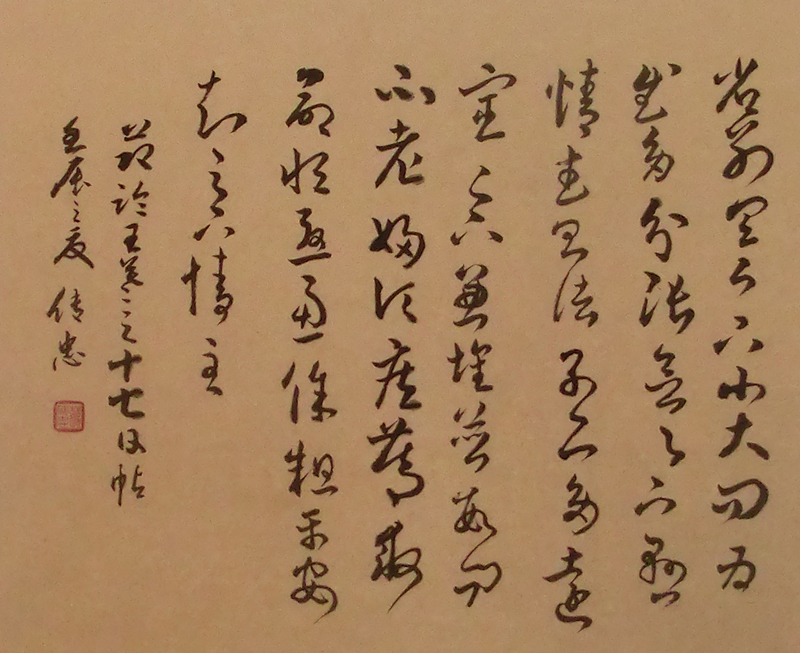 省別具足下小大問為
慰多分張念足下懸
情武昌諸子亦多遠
宦足下兼懷並數問
不老婦頃疾篤救
命恒憂慮餘粗平安
知足下情至
節臨王羲之十七日帖
壬辰之夏 忠